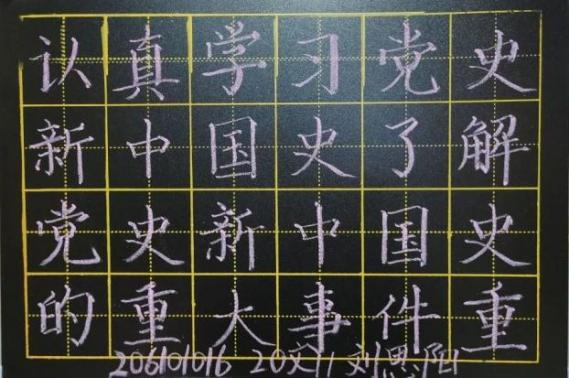 认真学习党史
新中国史了解
党史新中国史
的重大事件重
206101016 20汉11 刘思阳